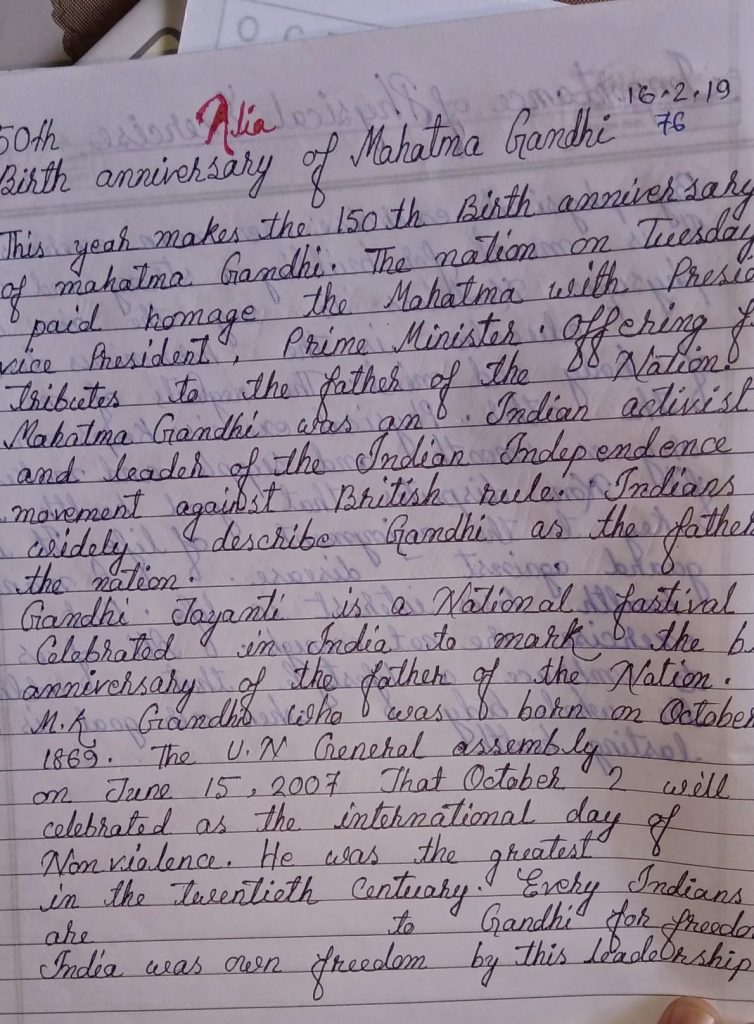 Alia
16.2.19
76
50th
Birth anniversary of Mahatma Gandhi
This year makes the 150th Birth anniversary
of mahatma Gandhi. The nation on Tuesday
paid homage the Mahatma with Presid
vice President, Prime Minister. offering f
Tributes to the father of the Nation.
Mahatma Gandhi was an Indian activist
and leader of the Indian Independence
movement against British rule. Indians
widely describe Gandhi as the father
the nation.
Gandhi Jayanti is a National fastival
Celebrated in India to mark the b
anniversary of the father of the Nation.
M.K Gandhi who was born on October
1869. The U.N General assembly
on June 15, 2007 That October 2 will
celebrated as the international day of
Non violence. He was the greatest
in the twentieth Centuary. Every Indians
are to Gandhi for freedo
India was own freedom by this leadership